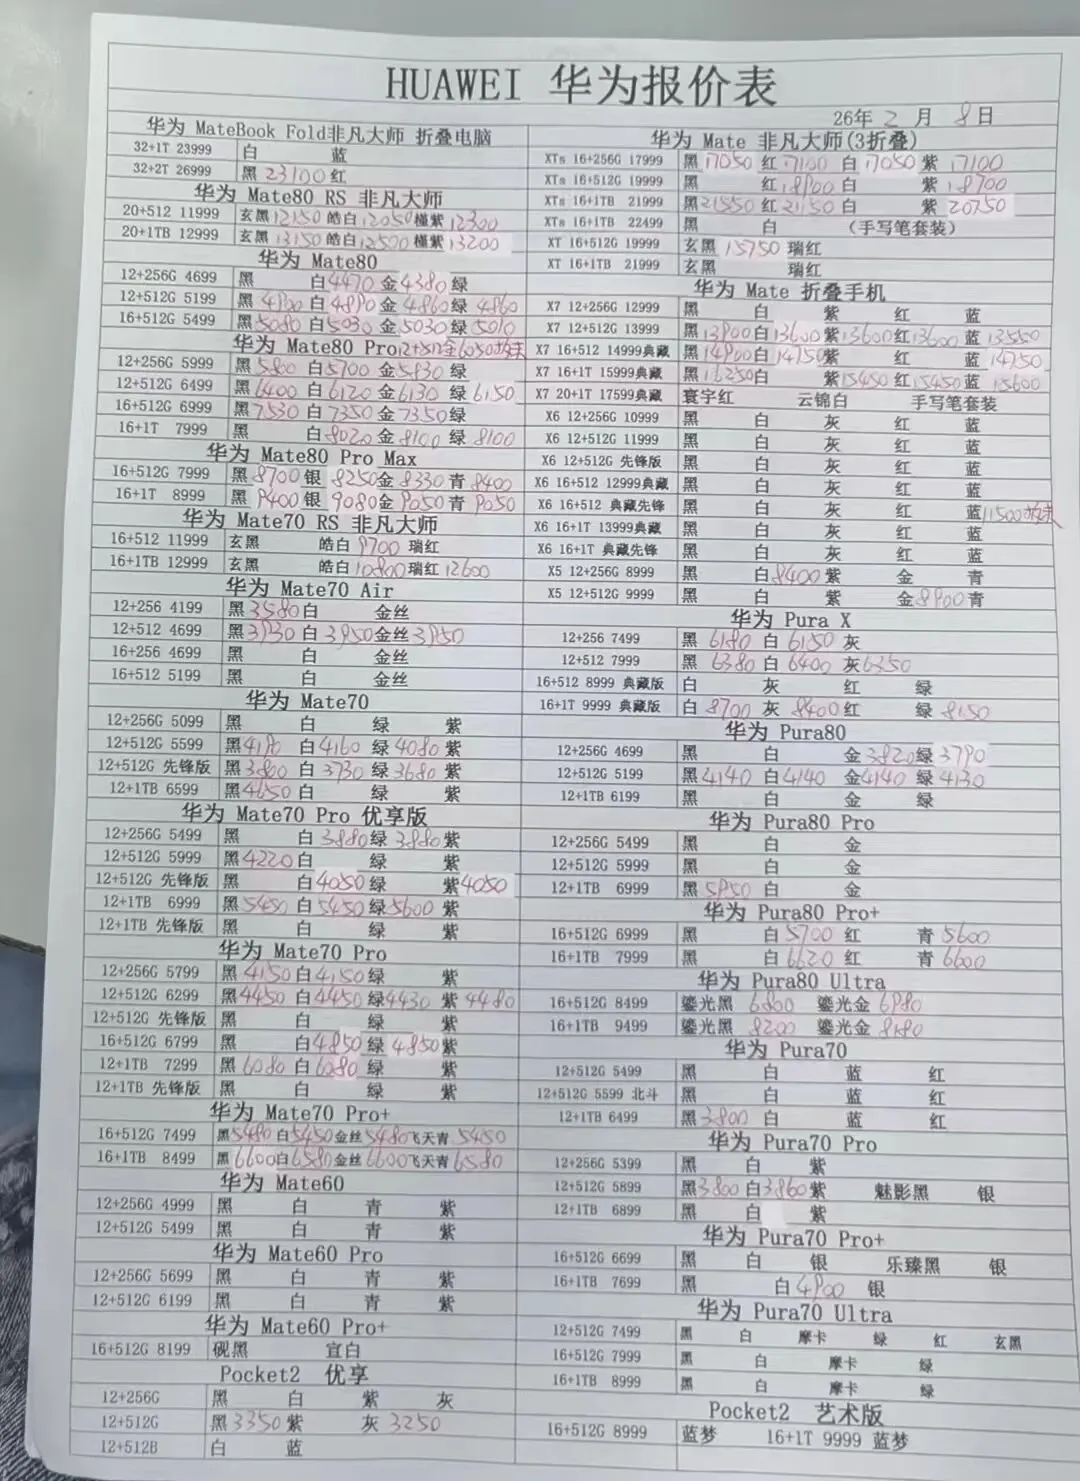 HUAWEI 华为报价表
26年 2 月 8日
华为 MateBook Fold非凡大师 折叠电脑
32+1T 23999 白 蓝
32+2T 26999 黑 23100 红
华为 Mate80 RS 非凡大师
20+512 11999 玄黑 12150 皓白 12050 槿紫 12300
20+1TB 12999 玄黑 13150 皓白 12500 槿紫 13200
华为 Mate80
12+256G 4699 黑 白 4470 金 4380 绿
12+512G 5199 黑 4900 白 4890 金 4860 绿 4860
16+512G 5499 黑 5080 白 5030 金 5030 绿 5010
华为 Mate80 Pro 12+512金6050
12+256G 5999 黑 5800 白 5700 金 5830 绿
12+512G 6499 黑 6400 白 6120 金 6130 绿 6150
16+512G 6999 黑 7530 白 7350 金 7350 绿
16+1T 7999 黑 白 8020 金 8100 绿 8100
华为 Mate80 Pro Max
16+512G 7999 黑 8700 银 8250 金 8330 青 8400
16+1T 8999 黑 9400 银 9080 金 9050 青 9050
华为 Mate70 RS 非凡大师
16+512 11999 玄黑 皓白 9700 瑞红
16+1TB 12999 玄黑 皓白 10800 瑞红 12600
华为 Mate70 Air
12+256 4199 黑 3580 白 金丝
12+512 4699 黑 3930 白 3950 金丝 3950
16+256 4699 黑 白 金丝
16+512 5199 黑 白 金丝
华为 Mate70
12+256G 5099 黑 白 绿 紫
12+512G 5599 黑 4190 白 4160 绿 4080 紫
12+512G 先锋版 黑 3800 白 3730 绿 3680 紫
12+1TB 6599 黑 4650 白 绿 紫
华为 Mate70 Pro 优享版
12+256G 5499 黑 白 3880 绿 3880 紫
12+512G 5999 黑 4220 白 绿 紫
12+512G 先锋版 黑 白 4050 绿 紫 4050
12+1TB 6999 黑 5450 白 5450 绿 5600 紫
12+1TB 先锋版 黑 白 绿 紫
华为 Mate70 Pro
12+256G 5799 黑 4150 白 4150 绿 紫
12+512G 6299 黑 4450 白 4450 绿 4430 紫 4480
12+512G 先锋版 黑 白 绿 紫
16+512G 6799 黑 白 4850 绿 4850 紫
12+1TB 7299 黑 6080 白 6080 绿 紫
12+1TB 先锋版 黑 白 绿 紫
华为 Mate70 Pro+
16+512G 7499 黑 5480 白 5450 金丝 5480 飞天青 5450
16+1TB 8499 黑 6600 白 6580 金丝 6600 飞天青 6580
华为 Mate60
12+256G 4999 黑 白 青 紫
12+512G 5499 黑 白 青 紫
华为 Mate60 Pro
12+256G 5699 黑 白 青 紫
12+512G 6199 黑 白 青 紫
华为 Mate60 Pro+
16+512G 8199 砚黑 宣白
Pocket2 优享
12+256G 黑 白 紫 灰
12+512G 黑 3350 紫 灰 3250
12+512B 白 蓝
华为 Mate 非凡大师(3折叠)
XTs 16+256G 17999 黑 17050 红 17100 白 17050 紫 17100
XTs 16+512G 19999 黑 红 18900 白 紫 18700
XTs 16+1TB 21999 黑 21550 红 21150 白 紫 20750
XTs 16+1TB 22499 黑 白 (手写笔套装)
XT 16+512G 19999 玄黑 15750 瑞红
XT 16+1TB 21999 玄黑 瑞红
华为 Mate 折叠手机
X7 12+256G 12999 黑 白 紫 红 蓝
X7 12+512G 13999 黑 13900 白 13600 紫 13600 红 13600 蓝 13550
X7 16+512 14999典藏 黑 14900 白 14750 紫 红 蓝 14750
X7 16+1T 15999典藏 黑 16250 白 紫 15450 红 15450 蓝 15600
X7 20+1T 17599典藏 寰宇红 云锦白 手写笔套装
X6 12+256G 10999 黑 白 灰 红 蓝
X6 12+512G 11999 黑 白 灰 红 蓝
X6 12+512G 先锋版 黑 白 灰 红 蓝
X6 16+512 12999典藏 黑 白 灰 红 蓝
X6 16+512 典藏先锋 黑 白 灰 红 蓝 11500
X6 16+1T 13999典藏 黑 白 灰 红 蓝
X6 16+1T 典藏先锋 黑 白 灰 红 蓝
X5 12+256G 8999 黑 白 8400 紫 金 青
X5 12+512G 9999 黑 白 紫 金 8900 青
华为 Pura X
12+256 7499 黑 6180 白 6150 灰
12+512 7999 黑 6380 白 6400 灰 6350
16+512 8999 典藏版 白 灰 红 绿
16+1T 9999 典藏版 白 8700 灰 8400 红 绿 8150
华为 Pura80
12+256G 4699 黑 白 金 3820 绿 3790
12+512G 5199 黑 4140 白 4140 金 4140 绿 4130
12+1TB 6199 黑 白 金 绿
华为 Pura80 Pro
12+256G 5499 黑 白 金
12+512G 5999 黑 白 金
12+1TB 6999 黑 5950 白 金
华为 Pura80 Pro+
16+512G 6999 黑 白 5700 红 青 5600
16+1TB 7999 黑 白 6620 红 青 6600
华为 Pura80 Ultra
16+512G 8499 鎏光黑 6800 鎏光金 6980
16+1TB 9499 鎏光黑 8200 鎏光金 8180
华为 Pura70
12+512G 5499 黑 白 蓝 红
12+512G 5599 北斗 黑 白 蓝 红
12+1TB 6499 黑 3800 白 蓝 红
华为 Pura70 Pro
12+256G 5399 黑 白 紫
12+512G 5899 黑 3800 白 3860 紫 魅影黑 银
12+1TB 6899 黑 白 紫
华为 Pura70 Pro+
16+512G 6699 黑 白 银 乐臻黑 银
16+1TB 7699 黑 白 4900 银
华为 Pura70 Ultra
12+512G 7499 黑 白 摩卡 绿 红 玄黑
16+512G 7999 黑 白 摩卡 绿
16+1TB 8999 黑 白 摩卡 绿
Pocket2 艺术版
16+512G 8999 蓝梦 16+1T 9999 蓝梦